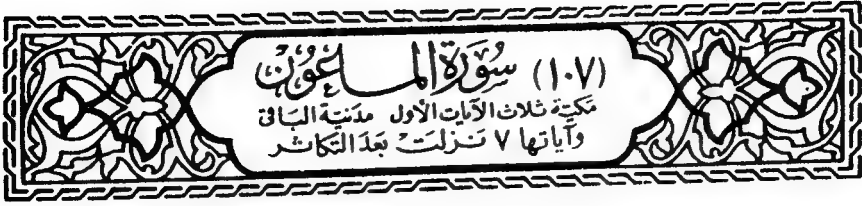 (١٠٧) سُورَة المَاعُون
مَكيّة ثلاث الآيات الأول مدَنية البَاقى
وآياتها ٧ نَزلَت بَعدَ التكاثر